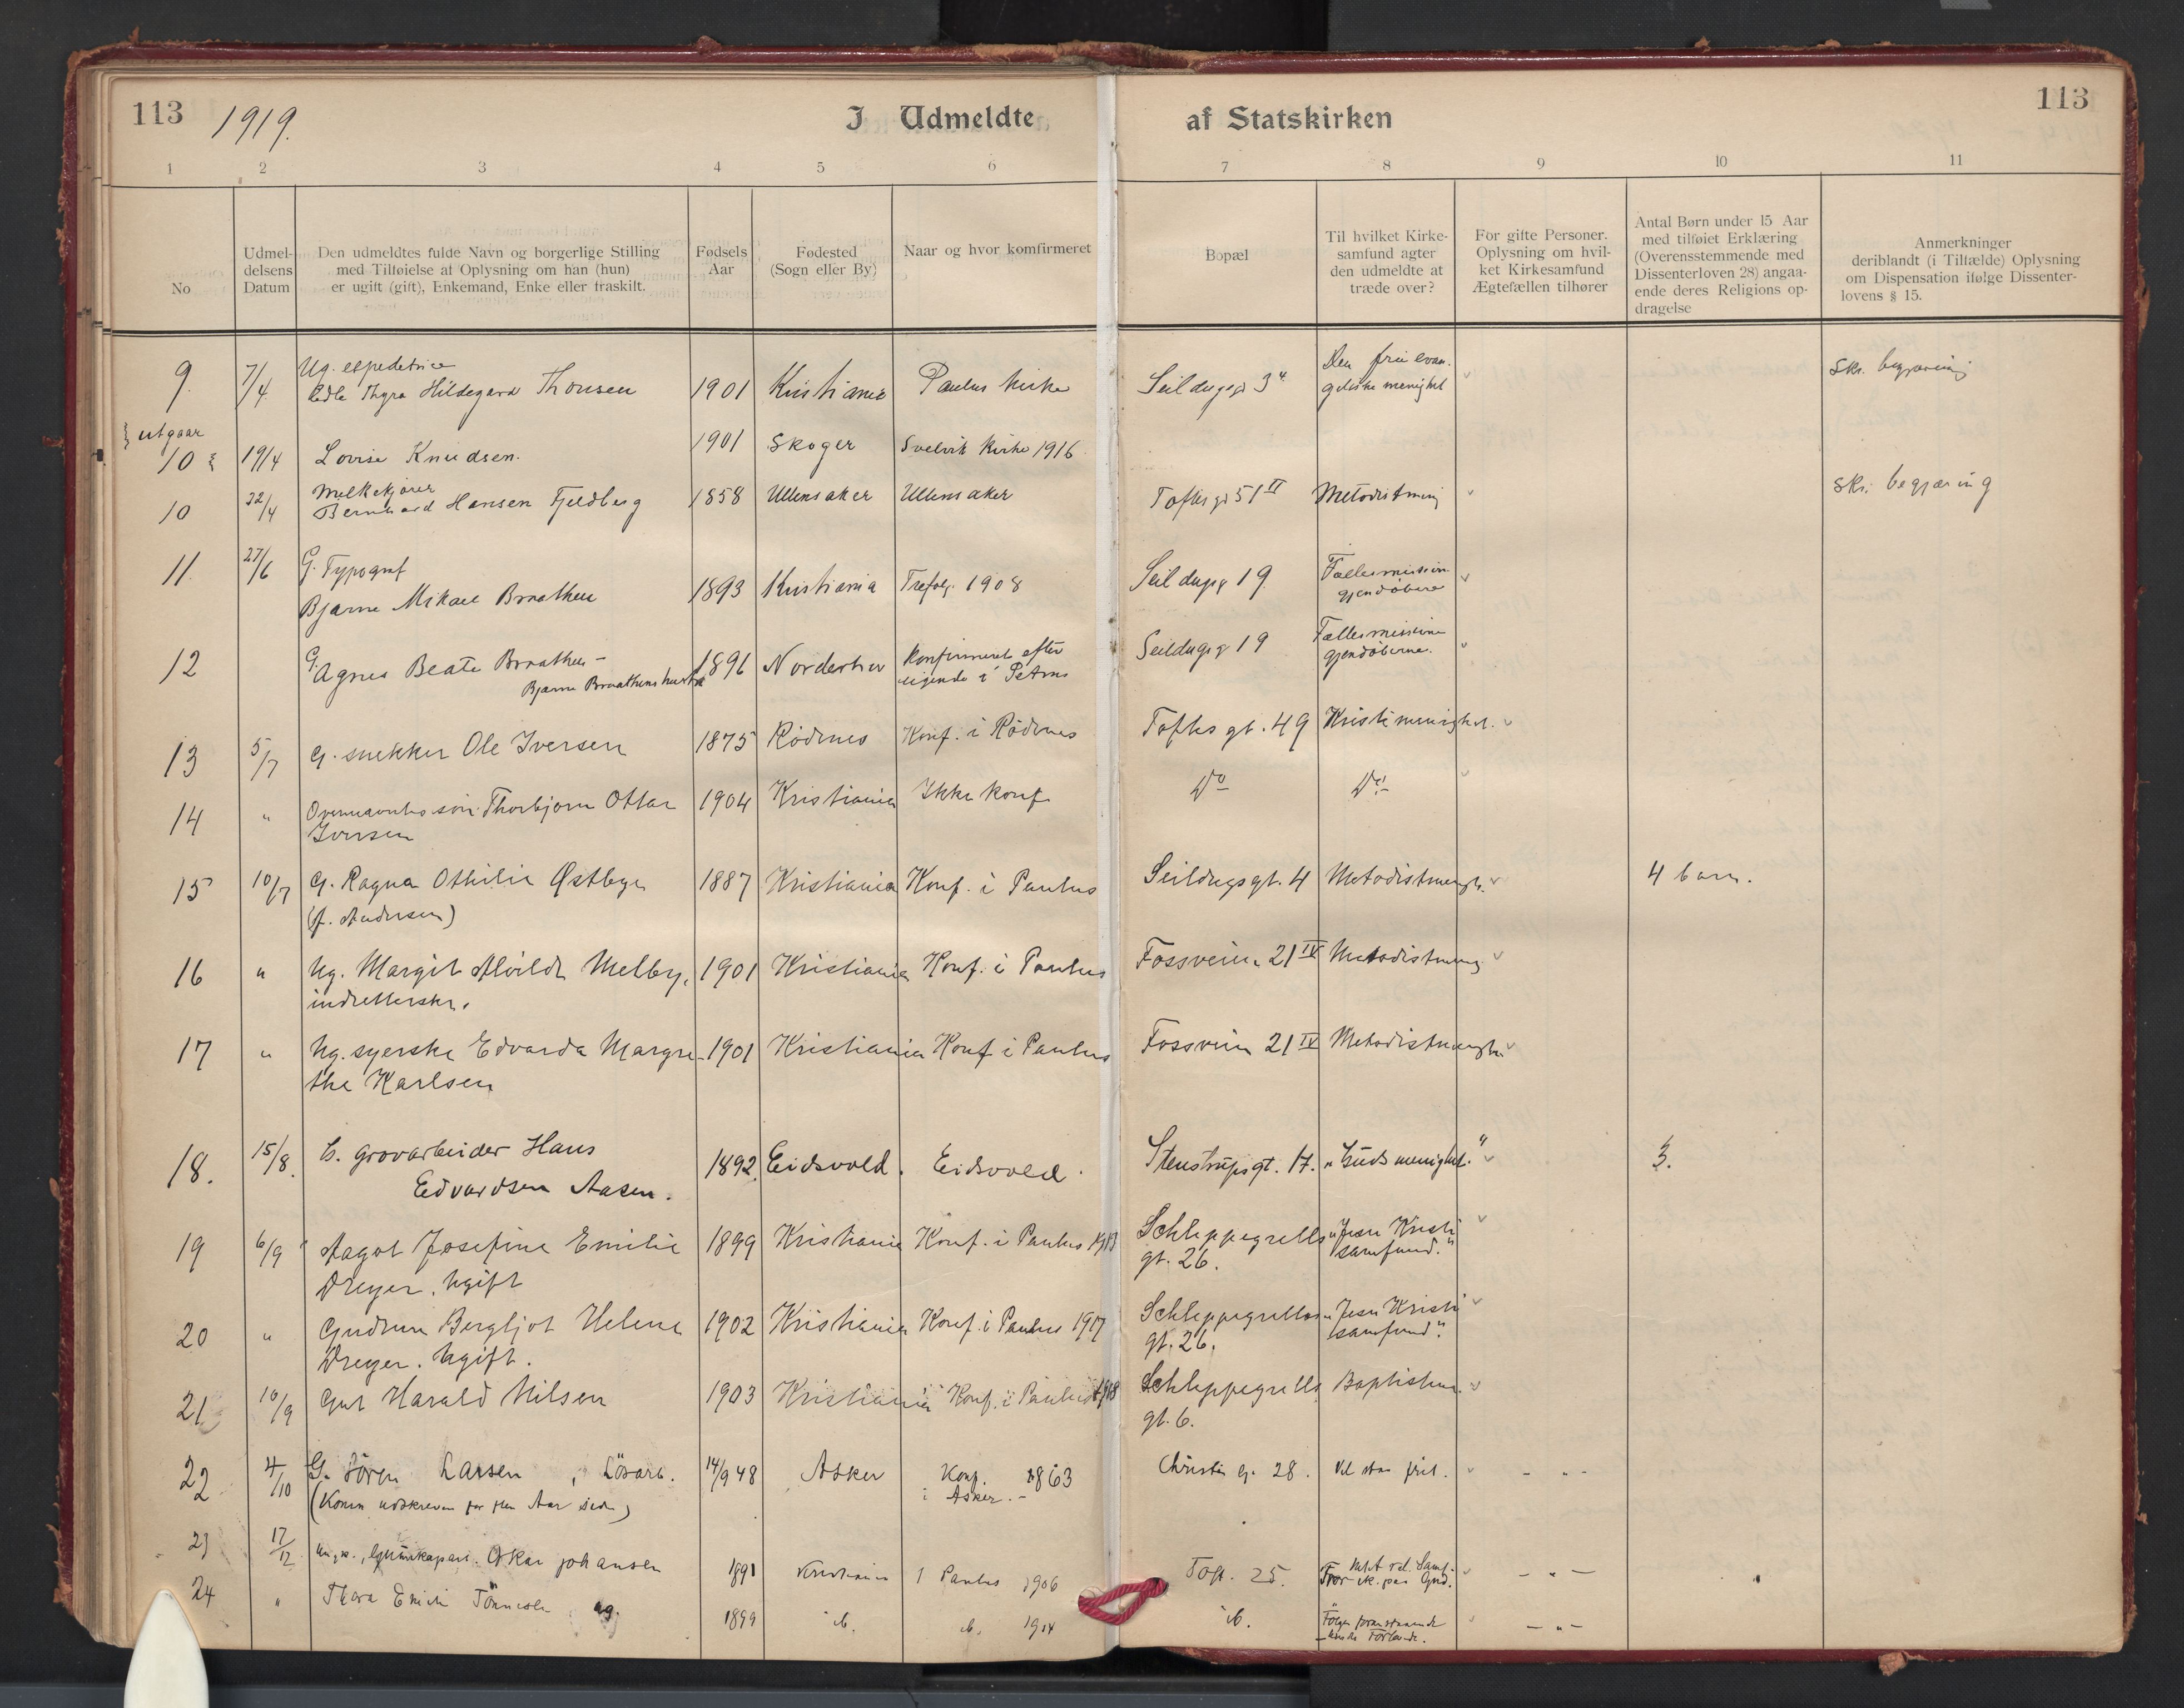 113 1919. I Udmeldte af Statskirken 113
1 2 3 4 5 6 7 8 9 10 11
No
Udmel-
delsens
Datum
Den udmeldtes fulde Navn og borgerlige Stilling
med Tilføielse af Oplysning om han (hun)
er ugift (gift), Enkemand, Enke eller fraskilt.
Fødsels
Aar
Fødested
(Sogn eller By)
Naar og hvor komfirmeret
Bopæl
Til hvilket Kirke-
samfund agter
den udmeldte at
træde over?
For gifte Personer.
Oplysning om hvil-
ket Kirkesamfund
Ægtefællen tilhører
Antal Børn under 15 Aar
med tilføiet Erklæring
(Overensstemmende med
Dissenterloven 28) angaa-
ende deres Religions op-
dragelse
Anmerkninger
deriblandt (i Tilfælde) Oplysning
om Dispensation ifølge Dissenter-
lovens § 15.
Ug. expeditrice Den frie evan-
9. 7/4 Thyra Hildegard Thonsen 1901 Kristiania Paulus kirke Seildugsg 3 geliske menighet skr. begjæring
utgaar
10 19/4 Lovise Knudsen. 1901 Skoger Svelvik Kirke 1916
Melkekjører
10 22/4 Bernhard Hansen Fjeldberg 1858 Ullensaker Ullensaker Toftesgt 51 II Metodistmenig skr. begjæring
11. 27/6 G. Typograf Fællesmission
Bjarne Mikael Braathen 1893 Kristiania Trefoldg. 1908 Seildugsg 19 gjendøbere
12 G. Agnes Beate Braathen - 1896 Norderhov Konfirmeret efter Seildugsg 19 Fællesmissionen
Bjarne Braathens hustru i Petrus gjendøberne.
13 5/7 G. snekker Ole Iversen 1875 Rødenes Konf. i Rødenes Toftes gt. 49 Kristi menighet.
14 " søn Thorbjørn Ottar 1904 Kristiania Ikke konf. Do Do
Iversen
15 10/7 G. Ragna Othilie Østbye 1887 Kristiania Konf. i Paulus Seildugsgt. 4 Metodistmenigh. 4 barn.
(f. Andersen)
16 " Ug. Margit Alvilde Melby, 1901 Kristiania Konf. i Paulus Fossveien 21 IV Metodistmenig
17 " Ug. syerske Edvarda Margre- 1901 Kristiania Konf i Paulus Fossveien 21 IV Metodistmenigh
the Karlsen
18. 15/8. G. grovarbeider Hans 1892. Eidsvold. Eidsvold. Stenstrupsgt. 17. "Guds menighet." 3.
Edvardsen Aasen.
19 6/9 Aagot Josefine Emilie 1899 Kristiania Konf. i Paulus 1913 Schleppegrells "Jesu Kristi
Dreyer. Ugift gt. 26. samfund."
20 " Gudrun Bergljot Helene 1902 Kristiania Konf. i Paulus 1917 Schleppegrells "Jesu Kristi
Dreyer. Ugift. gt. 26. samfund".
21 10/9 Gut Harald Nilsen 1903 Kristiania Konf. i Paulus 1918 Schleppegrells Baptistmen.
gt. 6.
22 4/10 G. Sören Larsen, Lösarb. 14/9 48 Asker Konf. 1863 Christies g. 28. Vil staa frit. - " -
i Asker. -
23 17/12 Oskar Johansen 1891 Kristiania i Paulus 1906 Toft. 25. - " -
24 " Thora Emilie Tönnesen ug. 1899 ib. ib. 1914 ib. - " -